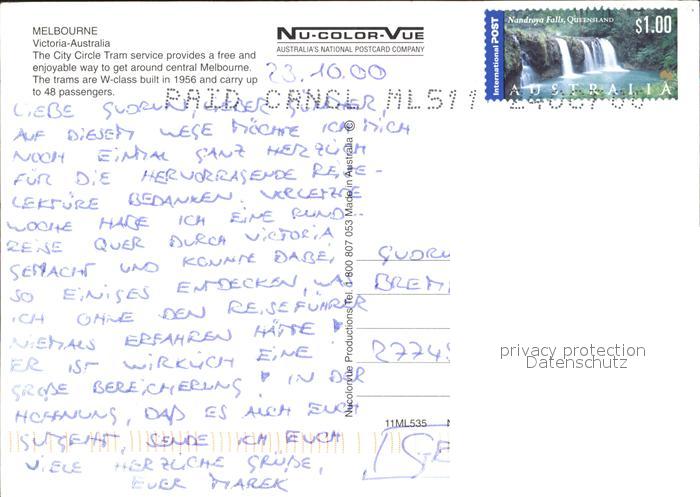 MELBOURNE
Victoria-Australia
The City Circle Tram service provides a free and
enjoyable way to get around central Melbourne.
The trams are W-class built in 1956 and carry up
to 48 passengers.
NU-COLOR-VUE
AUSTRALIA'S NATIONAL POSTCARD COMPANY
International POST
Nandroya Falls, QUEENSLAND
$1.00
AUSTRALIA
PAID CANGL ML511
23.10.00
LIEBE GUDRUN, LIEBER GÜNTHER,
AUF DIESEM WEGE MÖCHTE ICH MICH
NOCH EINMAL GANZ HERZLICH
FÜR DIE HERVORRAGENDE REISE-
LEKTÜRE BEDANKEN. VORLETZTE
WOCHE HABE ICH EINE RUND-
REISE QUER DURCH VICTORIA
GEMACHT UND KONNTE DABEI
SO EINIGES ENTDECKEN, WAS
ICH OHNE DEN REISEFÜHRER
NIEMALS ERFAHREN HÄTTE!
ER IST WIRKLICH EINE
GROßE BEREICHERUNG! IN DER
HOFFNUNG, DAß ES AUCH EUCH
GUTGEHT, SENDE ICH EUCH
VIELE HERZLICHE GRÜßE,
EUER MAREK
Nucolorvue Productions Tel. 1 800 807 053 Made in Australia ©
GUDRU
BREM
2774
11ML535
GE
privacy protection
Datenschutz